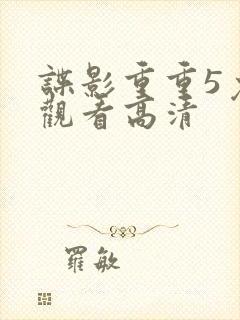 諜影重重5
觀看高清
羅敏